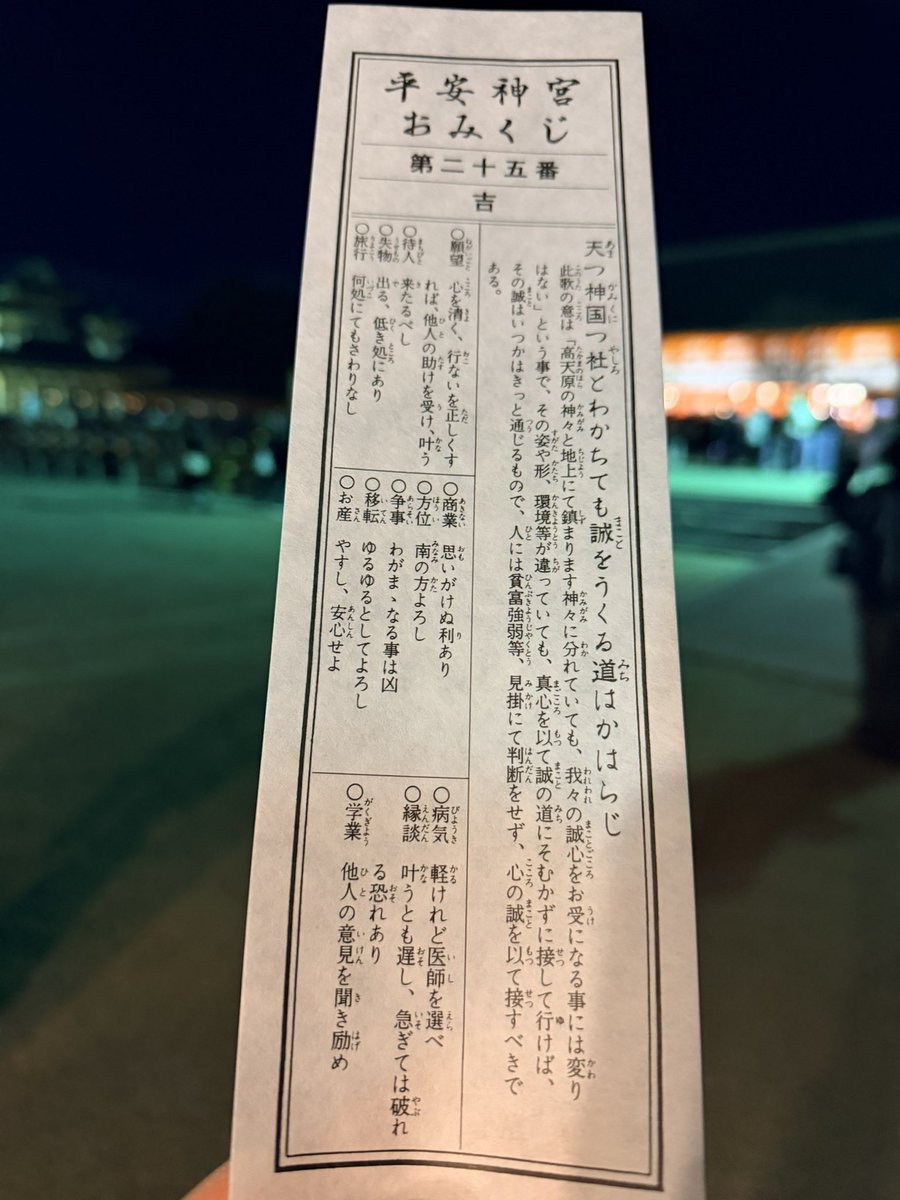 平安神宮
おみくじ
第二十五番
吉
天つ神国つ社とわかちても誠をうくる道はかはらじ
此歌の意は「高天原の神々と地上にて鎮まります神々に分れていても、我々の誠心をお受になる事には変り
はない」という事で、その姿や形、環境等が違っていても、真心を以て誠の道にそむかずに接して行けば、
その誠はいつかはきっと通じるもので、人には貧富強弱等、見掛にて判断をせず、心の誠を以て接すべきで
ある。
○願望 心を清く、行ないを正しくす
れば、他人の助けを受け、叶う
○待人 来たるべし
○失物 出る、低き処にあり
○旅行 何処にてもさわりなし
○商業 思いがけぬ利あり
○方位 南の方よろし
○争事 わがまゝなる事は凶
○移転 ゆるゆるとしてよろし
○お産 やすし、安心せよ
○病気 軽けれど医師を選べ
○縁談 叶うとも遅し、急ぎては破れ
る恐れあり
○学業 他人の意見を聞き励め